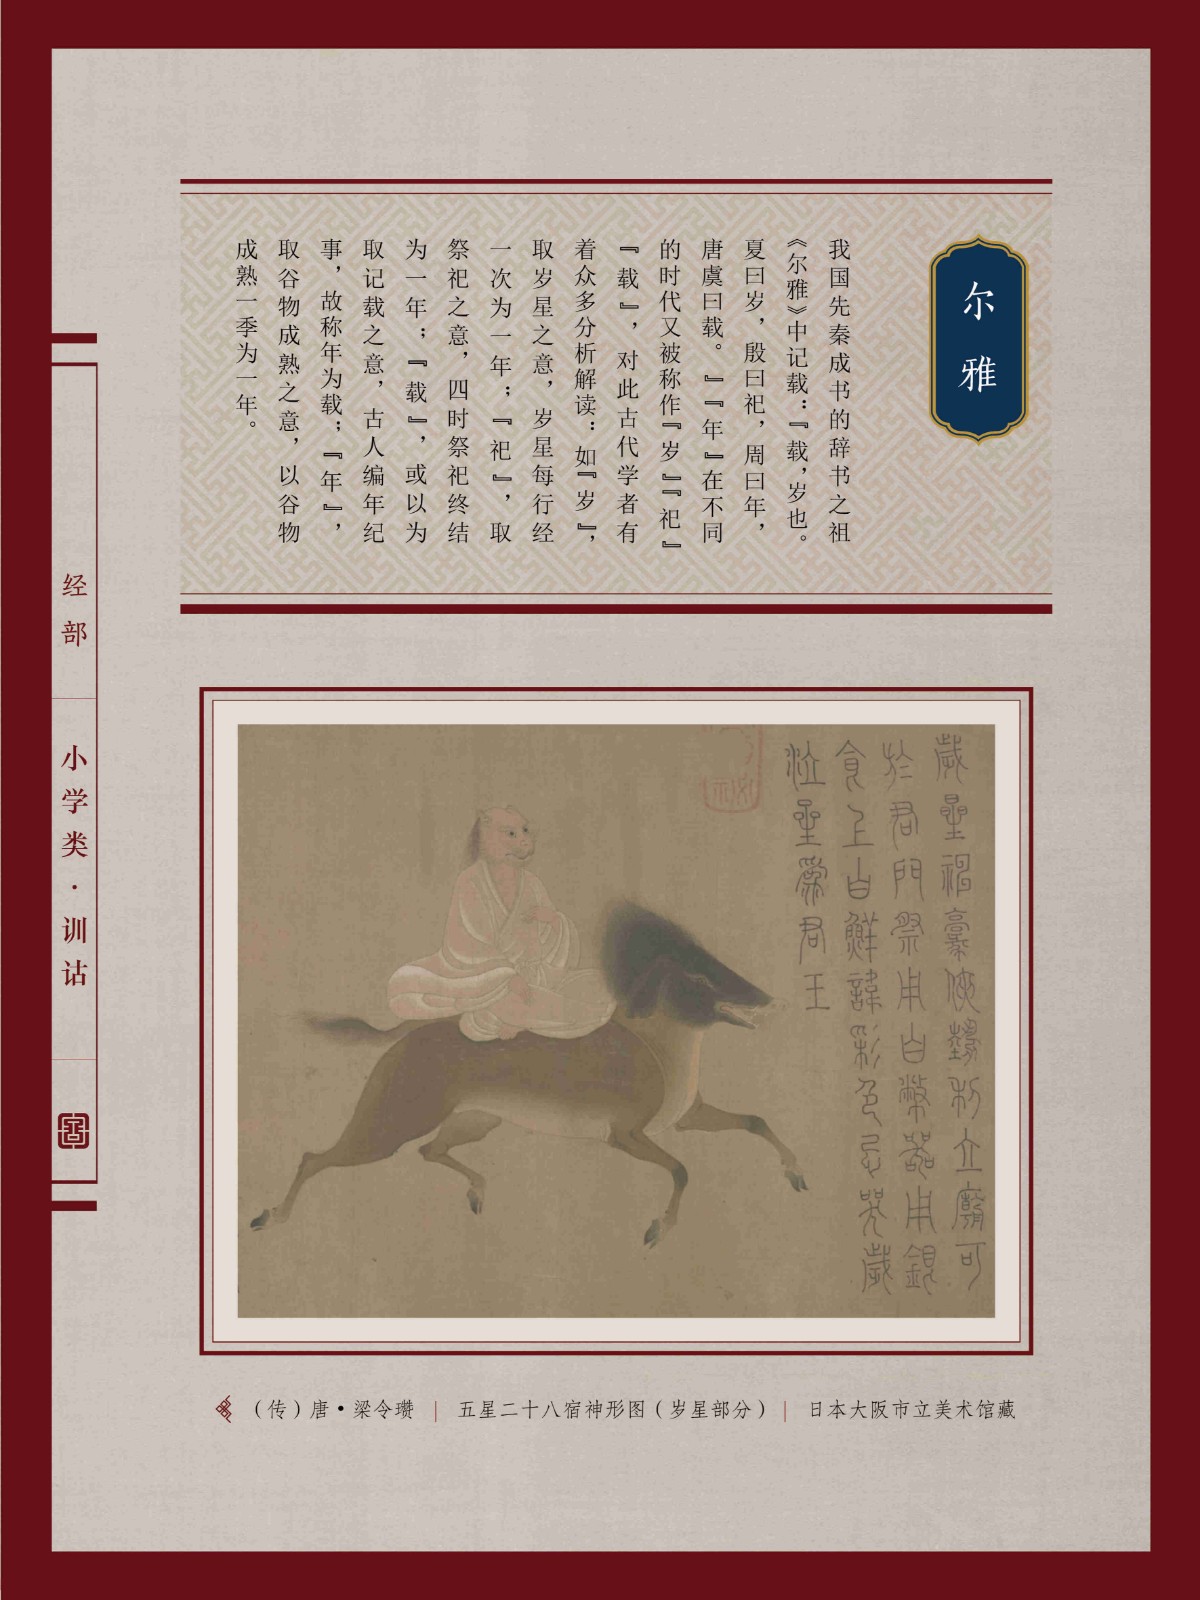 尔雅
我国先秦成书的辞书之祖
《尔雅》中记载：『载，岁也。
夏曰岁，殷曰祀，周曰年，
唐虞曰载。』『年』在不同
的时代又被称作『岁』『祀』
『载』，对此古代学者有
着众多分析解读：如『岁』，
取岁星之意，岁星每行经
一次为一年；『祀』，取
祭祀之意，四时祭祀终结
为一年；『载』，或以为
取记载之意，古人编年纪
事，故称年为载；『年』，
取谷物成熟之意，以谷物
成熟一季为一年。
经部
小学类·训诂
歲星神豪俠勢利立廟可
於君門祭用白幣器用銀
食上白鮮諱彩色忌哭
歲星為君王
（传）唐•梁令瓒 | 五星二十八宿神形图（岁星部分） | 日本大阪市立美术馆藏